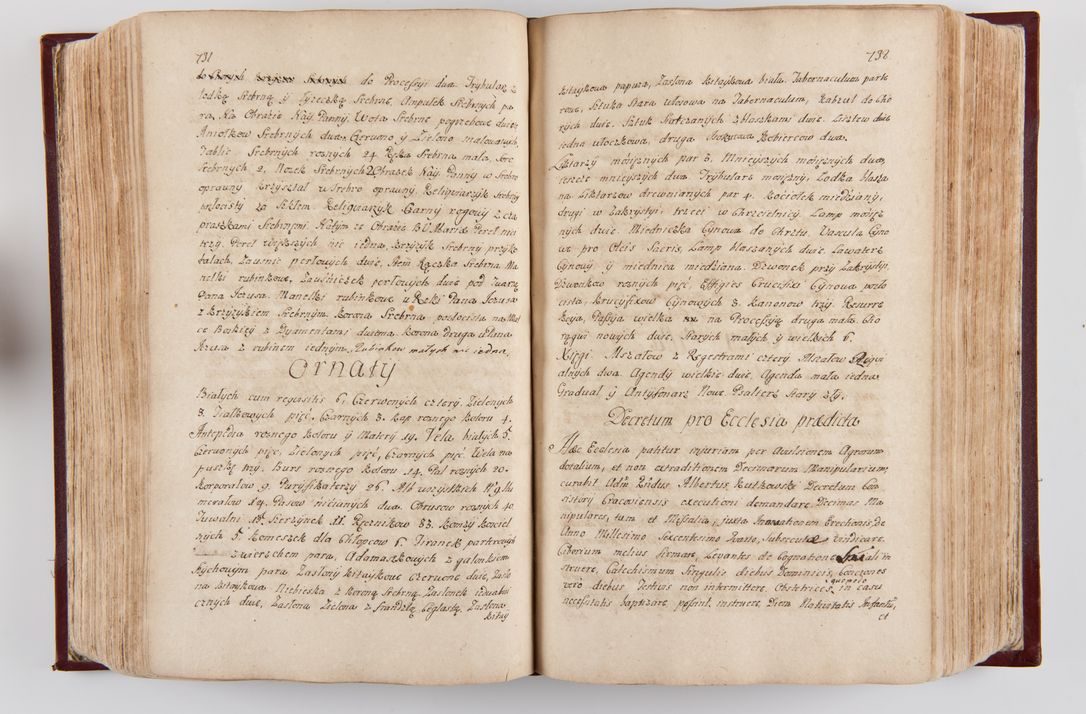 731
do Processyi dwa. Trybularz z
Łodką Srebrną y Łyżeczką Srebrne, Ampułek Srebrnych pa-
ra, Na Obrazie Nay: Panny. Wota Srebrne pogięchowe dwie
Aniołków Srebrnych dwa. Czerwono y Zielono malowanych,
Tablic Srebrnych roznych 24. Ręka Srebrna mała, Serc
Srebrnych 2. Nozek Srebrnych 2 Obrazek Nay: Panny w Srebro
oprawny Krzyształ w Srebro oprawny. Religwiarzyk Srebrny
pozłocisty za Szkłem. Religwiarzyk Czarny rogowy z czte
ptaszkami Srebrnymi. Na tym ze Obrazie B.V. Mariæ Pereł nici
trzy. Pereł większych nic iedna, Krzyżyk Srebrny przy Ko-
ralach, Zausnic perłowych dwie, Item Rączka Srebrna. Ma-
nelki rubinkowe, Zausniczek perłowych dwie pod Twarzą
Pana Jezusa. Manelki rubinkowe u Ręki Pana Jezusa
z Krzyżykiem Srebrnym. Korona Srebrna pozłocista na Mat
ce Boskiey z Dyamentami dwiema. Korona druga u Pana
Jezusa z rubinem iednym. Rubinkow małych nic iedna.
Ornaty
Białych cum requisitis 6. Czerwonych cztery. Zielonych
3. Fiałkowych pięć. Czarnych 3. Kap roznego Koloru 4.
Antepedia roznego Koloru y Matery 19. Vela białych 5.
Czerwonych pięć, Zielonych pięć, Czarnych pięć. Wela na
puszkę trzy. Burs roznego Koloru 14. Pal roznych 20.
Korporałow 9. Puryfikaterzy 26. Alb wszystkich 14. Hu
merałow 14. Pasow nicianych dwa. Obrusow roznych 40.
Tuwalni 18. Kierzynek 11. Ręcznikow 33. Komży Kosciel
nych 5. Komeszek dla Chłopcow 6. Firanek partrowych
z wierzchem para, Adamaszkowych z galonkiem
Rychowym para, Zasłony kitaykowe czerwone dwie, Zasło
na Kitaykowa Niebieska z Koroną Srebrną Zasłonek iedwab
cznych dwie, Zasłona Zielona z Frandzlą Ceglastą, Zasłona
kitay
732
kitaykowa papuza, Zasłona kitaykowa biała. Tabernaculum parte
rowe, Sztuka Stara włosowa na Tabernaculum, Kabzul do Cho
rych dwie. Sztuk Partzanych z blaszkami dwie. Listew dwie
iedna włoczkowa, druga. Kobiercow dwa.
Lichtarzy mosiężnych par 3. Mnieyszych mosiężnych dwa,
ieszcze mnieyszych dwa. Trybularz mosiężny, Łodka blasza
na. Lichtarzow drewnianych par 4. Kociołek miedziany,
drugi w Zakrystyi, trzeci w Chrzcielnicy. Lamp mosięż
nych dwie. Miedniczka Cynowa do Chrztu. Vascula Cyno
we pro Oleis Sacris, Lamp blaszanych dwie. Lawaterz
Cynowy y miednica miedziana. Dzwonek przy Zakrystyi.
Dzwonkow roznych pięć, Effigies Crucifixi Cynowa pozło
cista, Krucyfixow Cynowych 3. Kanonow trzy. Resurre
kcya, Passya wielka na Processyą druga mała. Cho
rągwi nowych dwie. Starych małych y wielkich 6.
Księgi. Mszałow z Regestrami cztery Mszałow Requi
alnych dwa. Agendy wielkie dwie, Agenda mała iedna.
Graduał y Antyfonarz Nowe. Psałterz Stary zły.
Decretum pro Ecclesia prædicta
Hæc Ecclesia patitur injuriam per Avulsionem Agrorum
dotalium, et non extraditionem Decimarum Manipularium,
curabit Adm Rndus Albertus Rutkowski Decretum Con
sistory Cracoviensis executioni demandare. Decimas Ma-
nipulares, tum et Missalia, juxta Innovationem Erectionis De
Anno Millesimo Sexcentesimo Quarto, Subsecutæ vindicare.
Ciborium melius firmare, Levantes de Cognatione Spirituali in
struere, Catechismum Singulis diebus Dominicis, Conciones
vero diebus Festivis non intermittere. Obstetrices, in casu
quomodo
necessitatis baptizare possint, instruere, Diem Nativitatis Infantis,
et